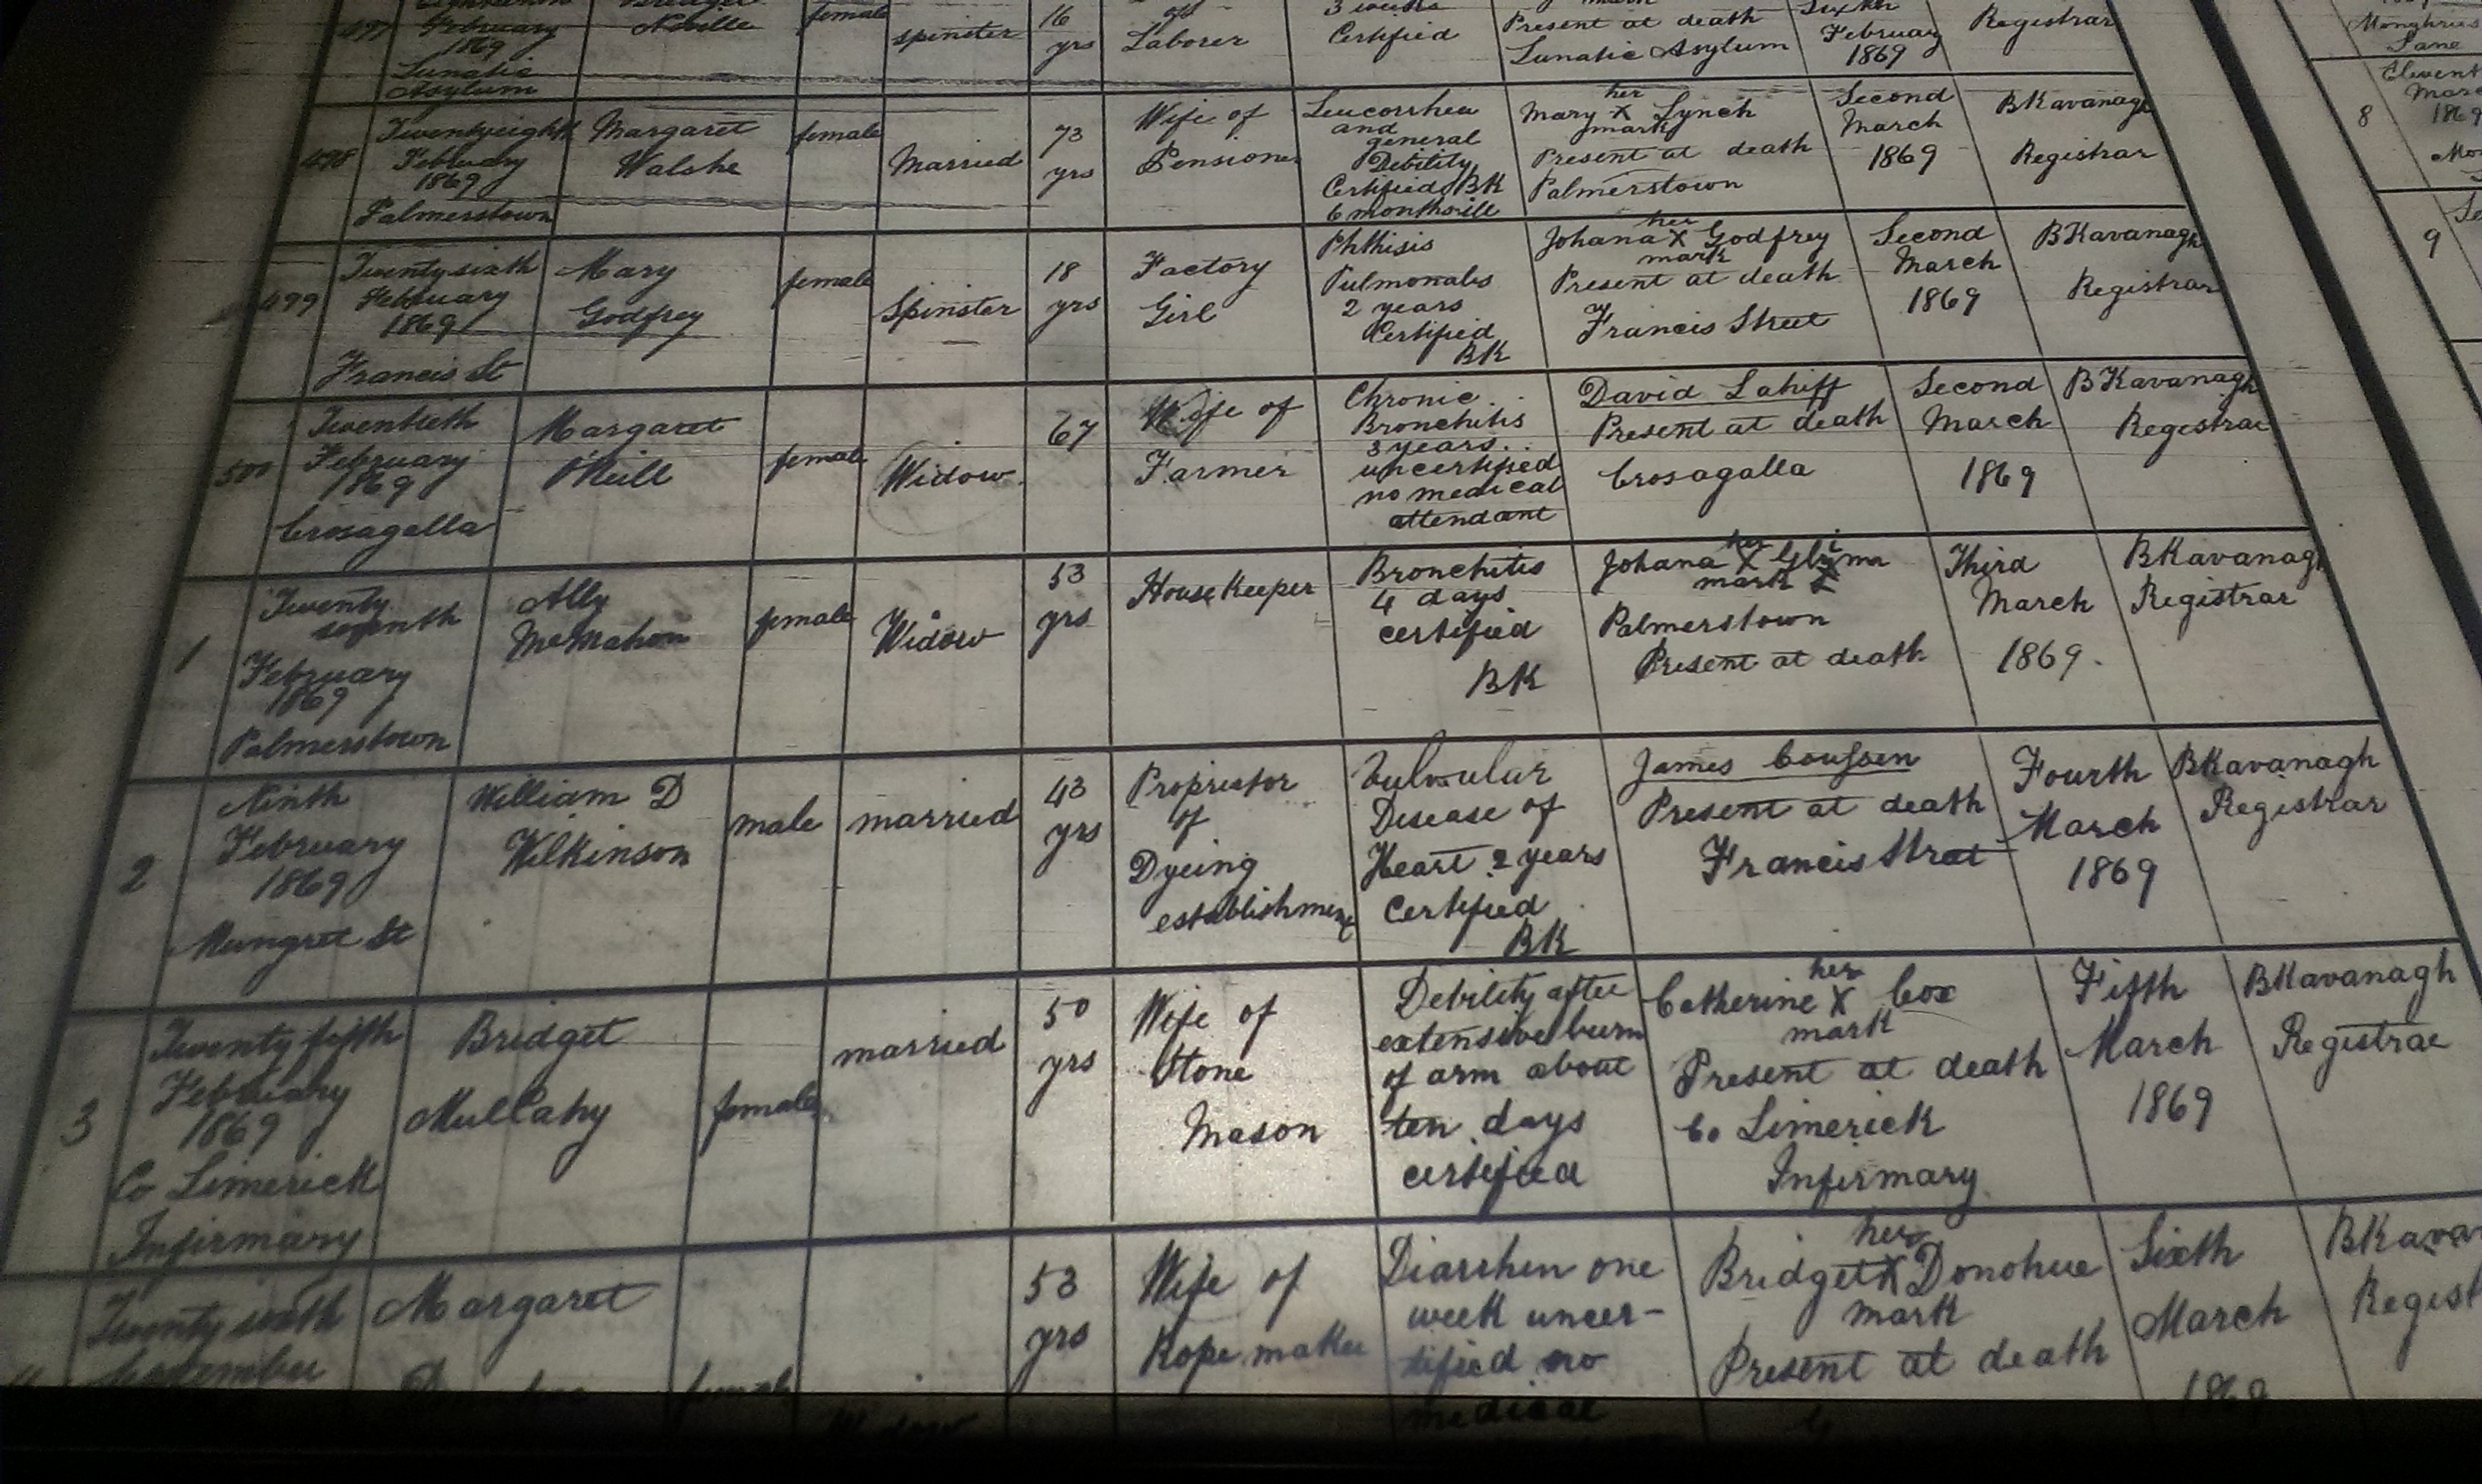 497
February
1869
Lunatic
Asylum
Neville
female
spinster
16
yrs
of
Laborer
3 weeks
Certified
mark
Present at death
Lunatic Asylum
February
1869
Registrar
498
Twentyeighth
February
1869
Palmerstown
Margaret
Walshe
female
Married
73
yrs
Wife of
Pensioner
Leucorrhea
and
general
Debility
Certified BK
6 months ill
her
Mary X Lynch
mark
Present at death
Palmerstown
Second
March
1869
BKavanagh
Registrar
499
Twentysixth
February
1869
Francis St
Mary
Godfrey
female
Spinster
18
yrs
Factory
Girl
Phthisis
Pulmonalis
2 years
Certified
BK
her
Johana X Godfrey
mark
Present at death
Francis Street
Second
March
1869
BKavanagh
Registrar
500
Twentieth
February
1869
Crosagalla
Margaret
O'Neill
female
Widow
67
Wife of
Farmer
Chronic
Bronchitis
3 years
uncertified
no medical
attendant
David Lahiff
Present at death
Crosagalla
Second
March
1869
BKavanagh
Registrar
1
Twenty
seventh
February
1869
Palmerstown
Ally
McMahon
female
Widow
53
yrs
House Keeper
Bronchitis
4 days
certified
BK
her
Johana X
mark
Palmerstown
Present at death
Third
March
1869.
BKavanagh
Registrar
2
Ninth
February
1869
Mungret St
William D
Wilkinson
male
married
43
yrs
Proprietor
of
Dyeing
establishment
Disease of
Heart 2 years
Certified
BK
James
Present at death
Francis Street
Fourth
March
1869
BKavanagh
Registrar
3
Twenty fifth
February
1869
Co Limerick
Infirmary
Bridget
Mullahy
female
married
50
yrs
Wife of
Stone
Mason
Debility after
extensive burn
of arm about
ten days
certified
her
Catherine X Cox
mark
Present at death
Co Limerick
Infirmary
Fifth
March
1869
BKavanagh
Registrar
Twenty sixth
Margaret
female
Widow
53
yrs
Wife of
Rope maker
Diarrhea one
week uncer-
tified no
medical
her
Bridget X Donohue
mark
Present at death
Sixth
March
1869
BKavan
Regist
Lane
8
Elevent
Marc
1869
9